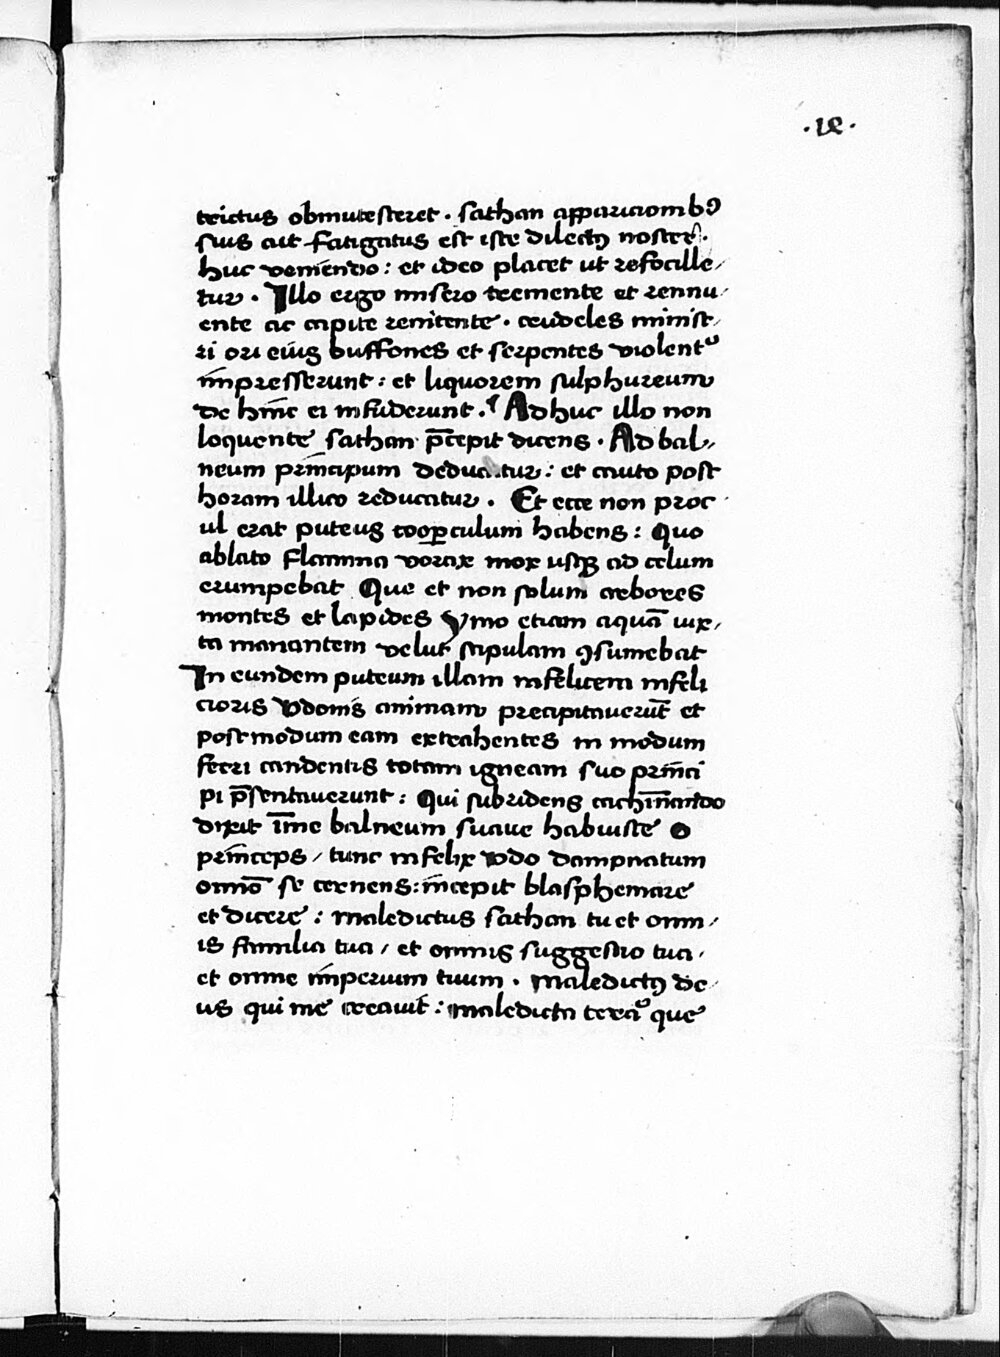 .ıꝯ.
trictus obmutesceret . sathan apparicionibꝰ
suis ait fatigatus est iste dilectꝰ noster .
huc veniendo : et ideo placet ut refocille/
tur . Illo ergo misero tremente et rennu/
ente ac capite renitente . crudeles minist/
ri ori eius buffones et serpentes violentᵉʳ
impresserunt : et liquorem sulphureum
de hinc ei infuderunt . Ad huc illo non
loquente sathan p̄cepit dicens . Ad bal/
neum principum deducatur : et cauto post
horam illico reducatur . Et ecce non proc/
ul erat puteus cooꝑculum habens : Quo
ablato flamma vorax mox usqꝫ ad celum
erumpebat Que et non solum arbores
montes et lapides ymo etiam aquā iux/
ta manantem velut stipulam ꝯsumebat
In eundem puteum illam infelicem infeli
cioris vdonis animam precipitaverūt et
postmodum eam extrahentes in modum
ferri candentis totam igneam suo princi
pi p̄sentaverunt : Qui subridens cachinnando
dixit īme balneum suave habuiste o
princeps / tunc infelix vdo dampnatum
omīo se cernens : incepit blasphemare
et dicere : maledictus sathan tu et omn/
is familia tua / et omnis suggestio tua /
et omne imperium tuum . maledictꝰ de/
us qui me creavit : maledicta terra que